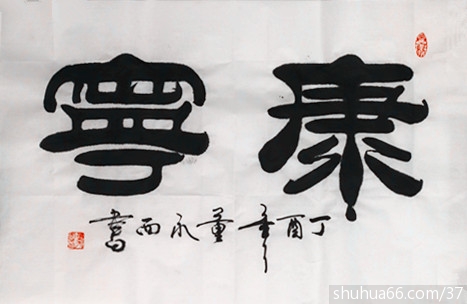 康寧
丁酉年董永西書
shuhua66.com/37